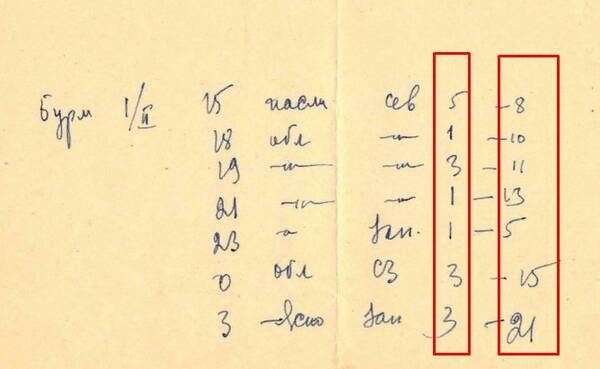 Бурм 1/II 15 пасм сев 5 -8
18 обл -"- 1 -10
19 -"- -"- 3 -11
21 -"- -"- 1 -13
23 " Зап. 1 -5
0 обл СЗ 3 -15
3 ясно Зап 3 -21